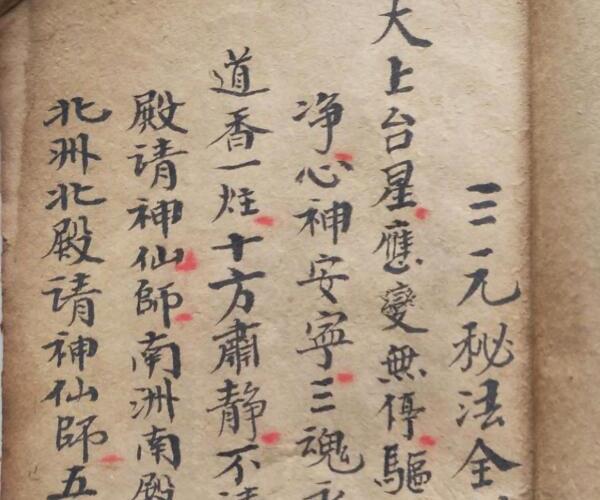 三元秘法全
大上台星應變無停驅
净心神安寧三魂永
道香一炷十方肅静不
殿请神仙師南洲南殿
北洲北殿请神仙師五